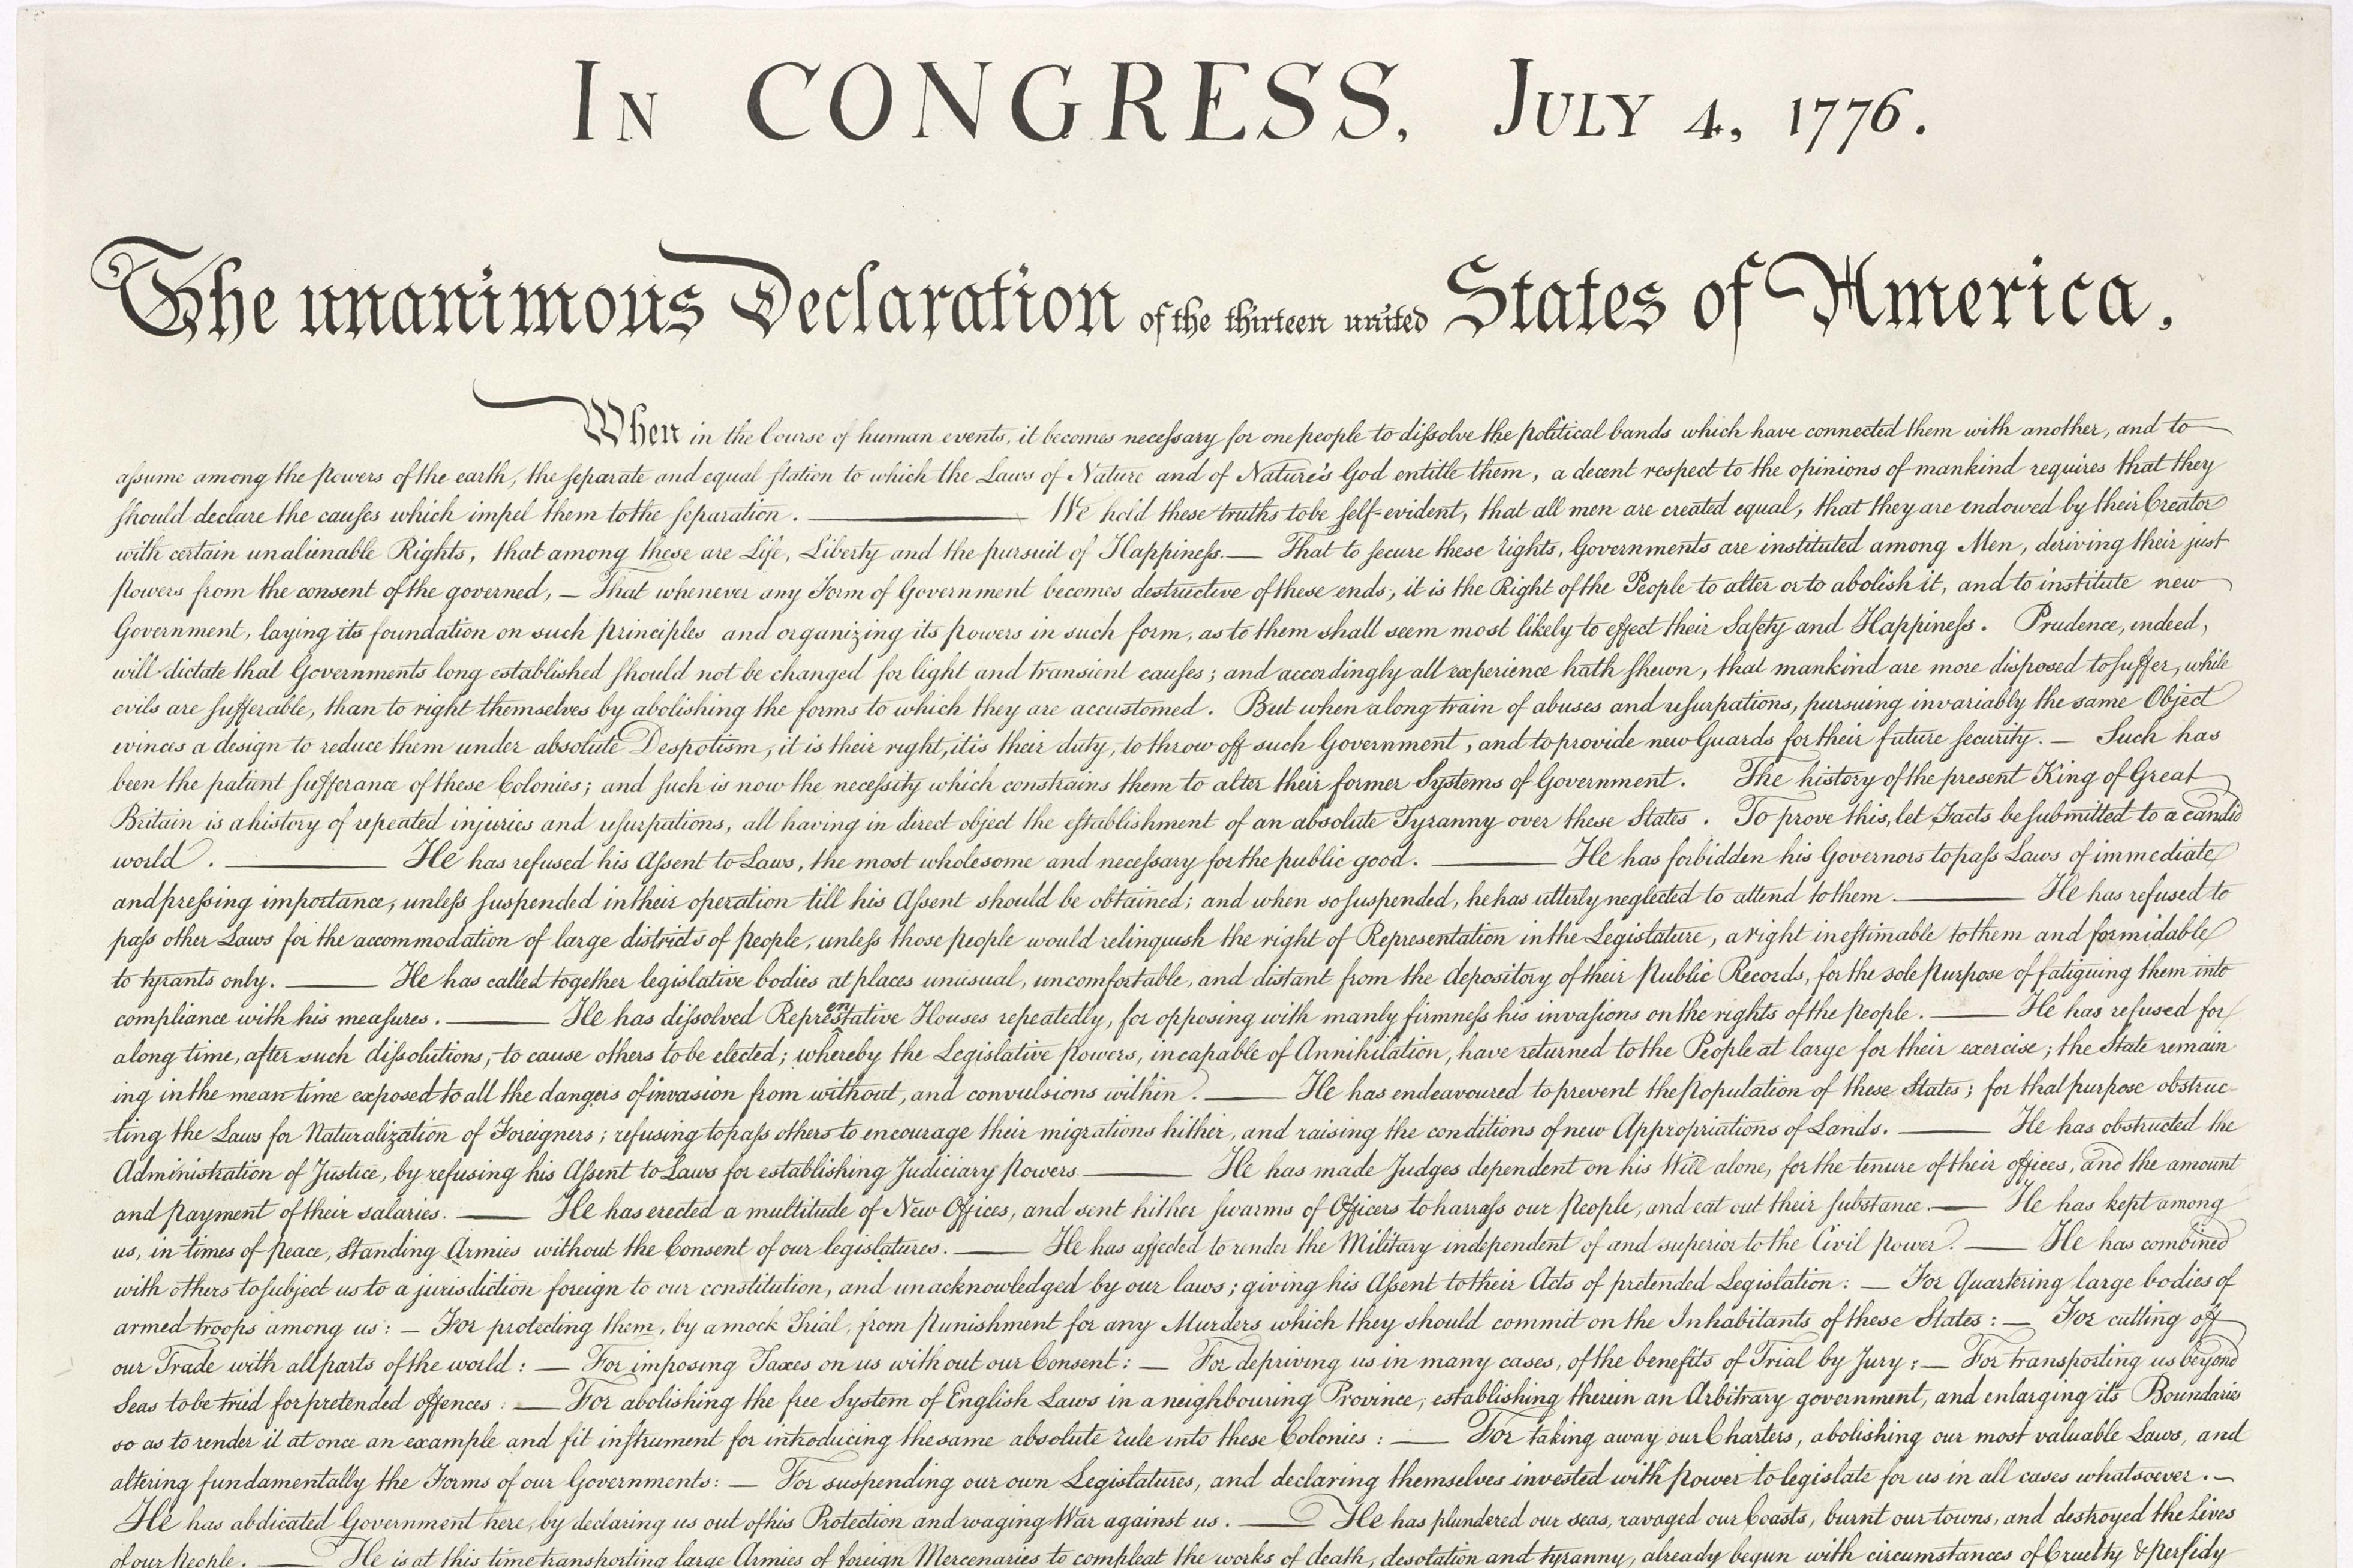 In CONGRESS, July 4, 1776.
The unanimous Declaration of the thirteen united States of America,
When in the Course of human events, it becomes necessary for one people to dissolve the political bands which have connected them with another, and to
assume among the powers of the earth, the separate and equal station to which the Laws of Nature and of Nature's God entitle them, a decent respect to the opinions of mankind requires that they
should declare the causes which impel them to the separation. — We hold these truths to be self-evident, that all men are created equal, that they are endowed by their Creator
with certain unalienable Rights, that among these are Life, Liberty and the pursuit of Happiness. — That to secure these rights, Governments are instituted among Men, deriving their just
powers from the consent of the governed, — That whenever any Form of Government becomes destructive of these ends, it is the Right of the People to alter or to abolish it, and to institute new
Government, laying its foundation on such principles and organizing its powers in such form, as to them shall seem most likely to effect their Safety and Happiness. Prudence, indeed,
will dictate that Governments long established should not be changed for light and transient causes; and accordingly all experience hath shewn, that mankind are more disposed to suffer, while
evils are sufferable, than to right themselves by abolishing the forms to which they are accustomed. But when a long train of abuses and usurpations, pursuing invariably the same Object
evinces a design to reduce them under absolute Despotism, it is their right, it is their duty, to throw off such Government, and to provide new Guards for their future security. — Such has
been the patient sufferance of these Colonies; and such is now the necessity which constrains them to alter their former Systems of Government. The history of the present King of Great
Britain is a history of repeated injuries and usurpations, all having in direct object the establishment of an absolute Tyranny over these States. To prove this, let Facts be submitted to a candid
world. — He has refused his Assent to Laws, the most wholesome and necessary for the public good. — He has forbidden his Governors to pass Laws of immediate
and pressing importance, unless suspended in their operation till his Assent should be obtained; and when so suspended, he has utterly neglected to attend to them. — He has refused to
pass other Laws for the accommodation of large districts of people, unless those people would relinquish the right of Representation in the Legislature, a right inestimable to them and formidable
to tyrants only. — He has called together legislative bodies at places unusual, uncomfortable, and distant from the depository of their Public Records, for the sole purpose of fatiguing them into
compliance with his measures. — He has dissolved Representative Houses repeatedly, for opposing with manly firmness his invasions on the rights of the people. — He has refused for
a long time, after such dissolutions, to cause others to be elected; whereby the Legislative powers, incapable of Annihilation, have returned to the People at large for their exercise; the State remain-
ing in the mean time exposed to all the dangers of invasion from without, and convulsions within. — He has endeavoured to prevent the population of these States; for that purpose obstruc-
ting the Laws for Naturalization of Foreigners; refusing to pass others to encourage their migrations hither, and raising the conditions of new Appropriations of Lands. — He has obstructed the
Administration of Justice, by refusing his Assent to Laws for establishing Judiciary powers — He has made Judges dependent on his Will alone, for the tenure of their offices, and the amount
and payment of their salaries. — He has erected a multitude of New Offices, and sent hither swarms of Officers to harrass our people, and eat out their substance. — He has kept among
us, in times of peace, Standing Armies without the Consent of our legislatures. — He has affected to render the Military independent of and superior to the Civil power. — He has combined
with others to subject us to a jurisdiction foreign to our constitution, and unacknowledged by our laws; giving his Assent to their Acts of pretended Legislation: — For Quartering large bodies of
armed troops among us: — For protecting them, by a mock Trial, from punishment for any Murders which they should commit on the Inhabitants of these States: — For cutting off
our Trade with all parts of the world: — For imposing Taxes on us without our Consent: — For depriving us in many cases, of the benefits of Trial by Jury: — For transporting us beyond
Seas to be tried for pretended offences: — For abolishing the free System of English Laws in a neighbouring Province, establishing therein an Arbitrary government, and enlarging its Boundaries
so as to render it at once an example and fit instrument for introducing the same absolute rule into these Colonies: — For taking away our Charters, abolishing our most valuable Laws, and
altering fundamentally the Forms of our Governments: — For suspending our own Legislatures, and declaring themselves invested with power to legislate for us in all cases whatsoever. —
He has abdicated Government here, by declaring us out of his Protection and waging War against us. — He has plundered our seas, ravaged our Coasts, burnt our towns, and destroyed the lives
of our people. — He is at this time transporting large Armies of foreign Mercenaries to compleat the works of death, desolation and tyranny, already begun with circumstances of Cruelty & perfidy